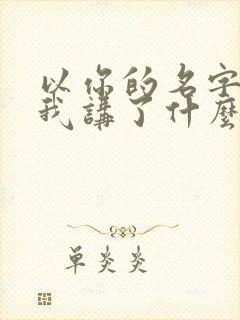 以你的名字
我講了什麼
單炎炎